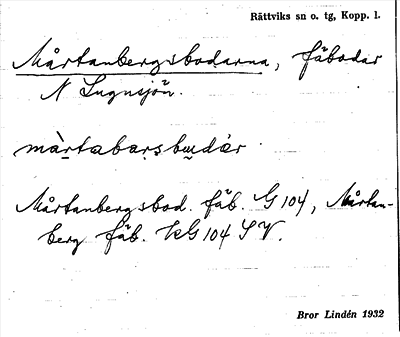 Rättviks sn o. tg, Kopp. l.
Mårtanbergsbodarna, fäbodar
N Lugnsjön.
màrtabarsbudár
Mårtanbergsbod. fäb. G 104, Mårtan-
berg fäb. kG 104 SV.
Bror Lindén 1932